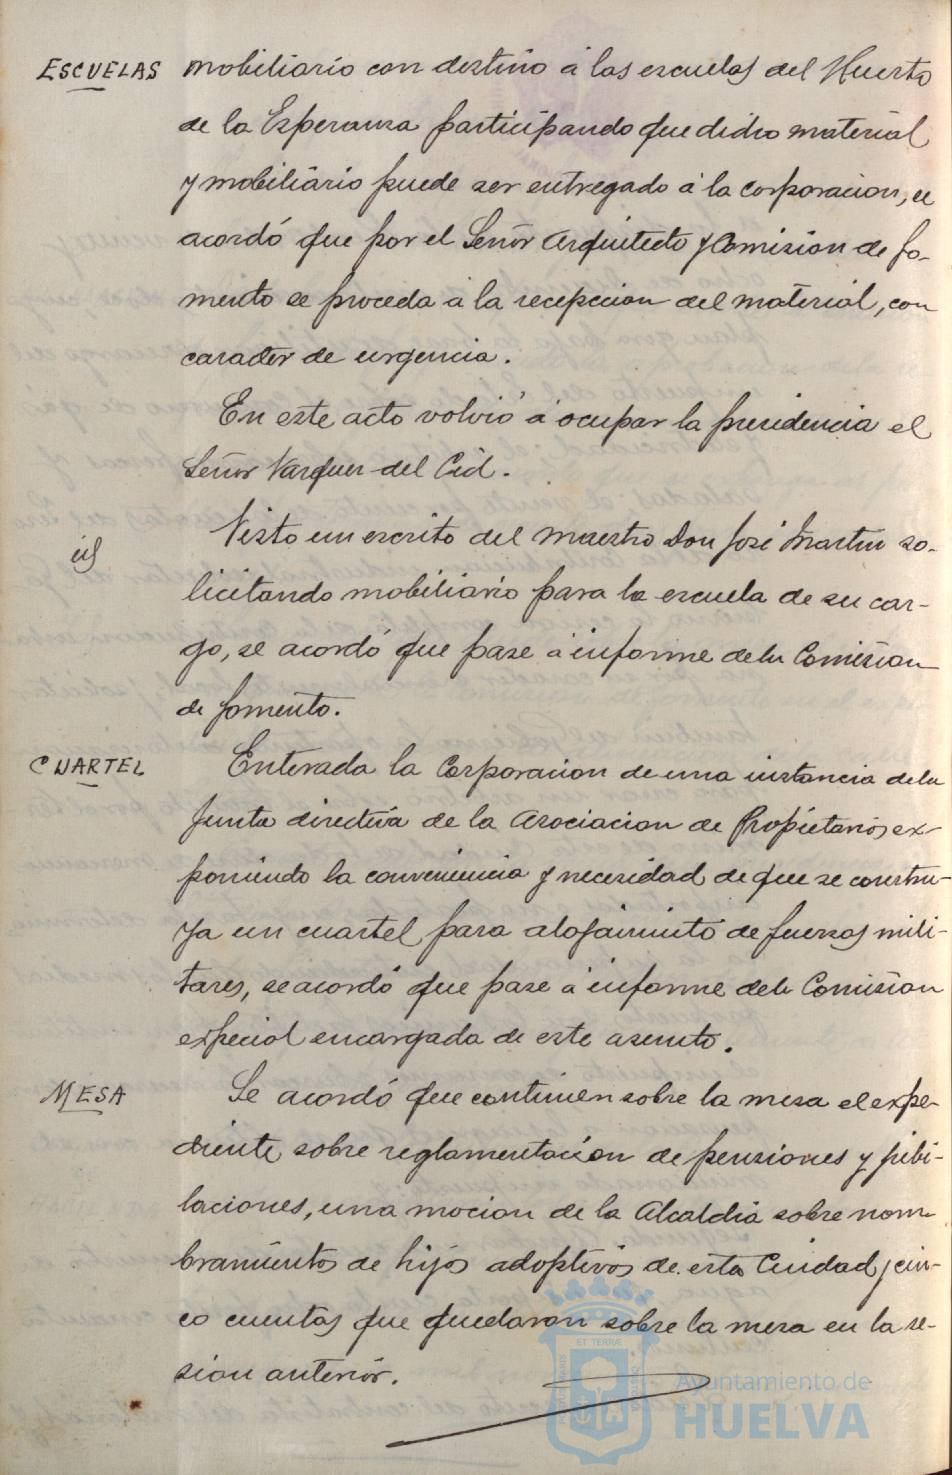 ESCUELAS mobiliario con destino á las escuelas del Huerto
de la Esperanza participando que dicho material
y mobiliario puede ser entregado á la corporacion, se
acordó que por el Señor Arquitecto y Comision de fo-
mento se proceda á la recepcion del material, con
caracter de urgencia.
En este acto volvió á ocupar la presidencia el
Señor Vazquez del Cid.
Visto un escrito del maestro Don José Martin so-
licitando mobiliario para la escuela de su car-
go, se acordó que pase á informe de la Comision
de fomento.
CUARTEL Enterada la Corporacion de una instancia de la
Junta directiva de la Asociacion de Propietarios ex-
poniendo la conveniencia y necesidad de que se constru-
ya un cuartel para alojamiento de fuerzas mili-
tares, se acordó que pase á informe de la Comision
especial encargada de este asunto.
MESA Se acordó que continuen sobre la mesa el expe-
diente sobre reglamentacion de pensiones y jubi-
laciones, una mocion de la Alcaldia sobre nom-
bramientos de hijos adoptivos de esta Ciudad y cin-
co cuentas que quedaron sobre la mesa en la se-
sion anterior.
ET TERRÆ
Ayuntamiento de
HUELVA